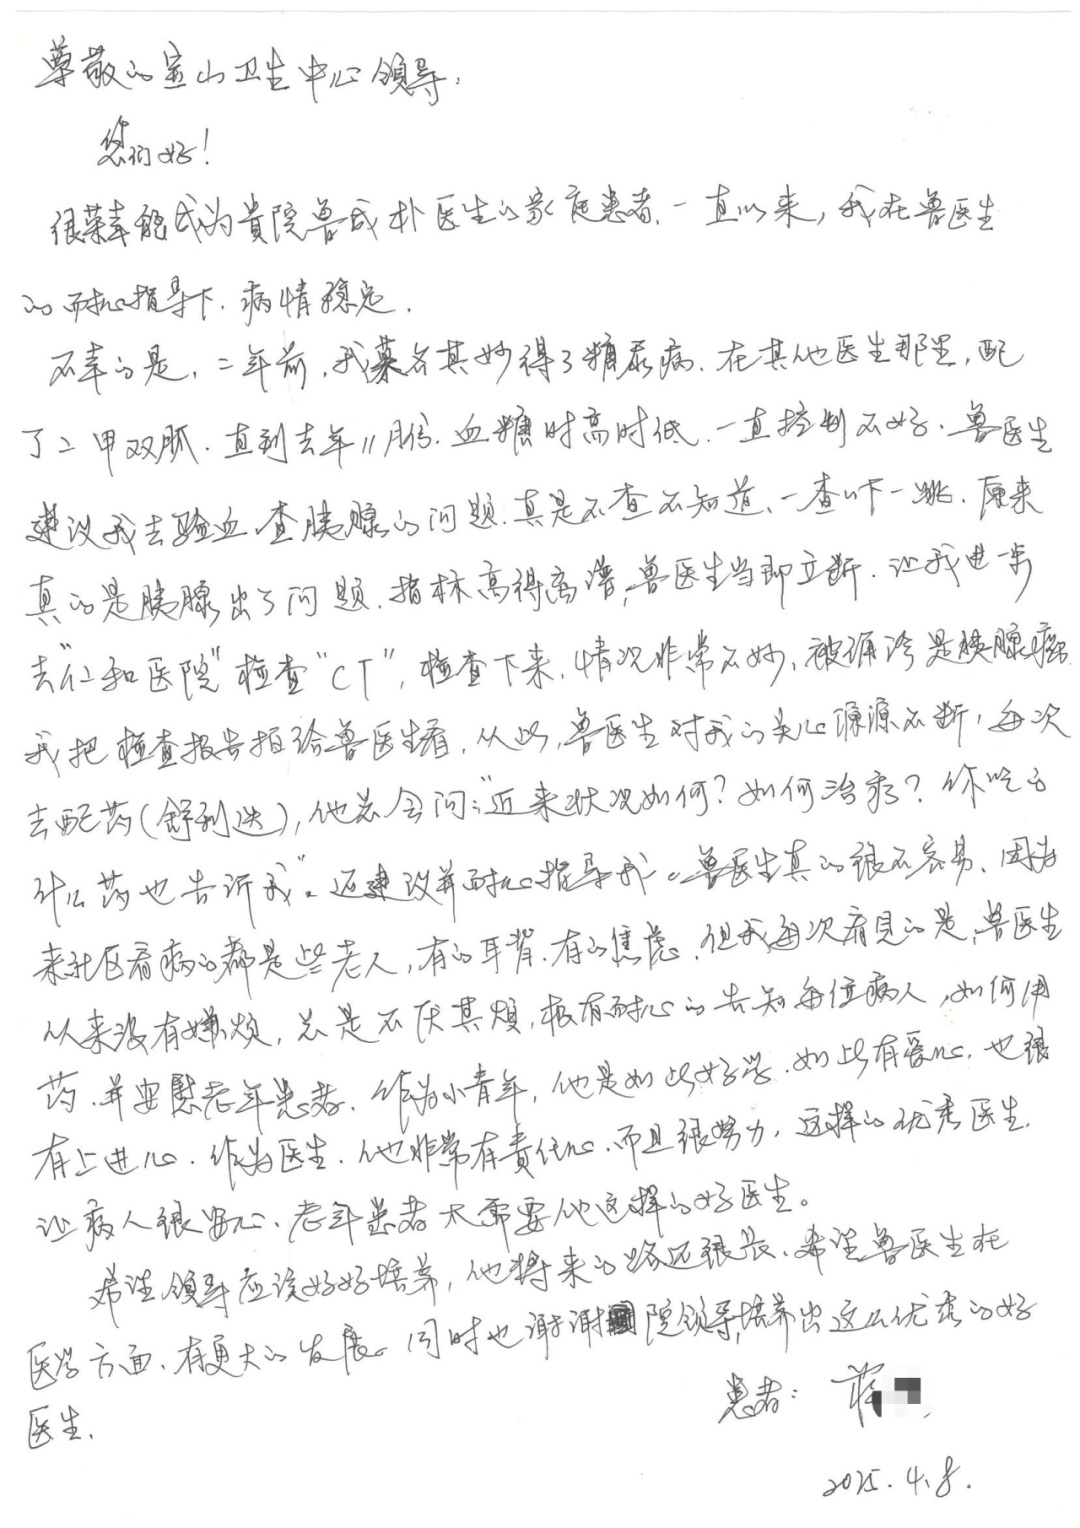 尊敬的宝山卫生中心领导：
您们好！
很荣幸能成为贵院兽成朴医生的家庭患者、一直以来，我在兽医生
的耐心指导下．病情稳定．
不幸的是．二年前．我莫名其妙得了糖尿病．在其他医生那里，配
了二甲双胍．直到去年11月份．血糖时高时低．一直控制不好．兽医生
建议我去验血、查胰腺的问题．真是不查不知道、一查吓一跳．原来
真的是胰腺出了问题．指标高得离谱，兽医生当即立断．让我进一步
去“仁和医院”检查“CT”，检查下来．情况非常不妙、被确诊是胰腺癌
我把检查报告拍给兽医生看．从此，兽医生对我的关心源源不断，每次
去配药(舒利迭)，他总会问：“近来状况如何？如何治疗？你吃的
什么药也告诉我”。还建议并耐心指导我。兽医生真的很不容易．因为
来社区看病的都是些老人，有的耳背．有的焦虑．但我每次看见的是，兽医生
从来没有嫌烦．总是不厌其烦，极有耐心的告知每位病人，如何用
药．并安慰老年患者．作为小青年，他是如此好学．如此有爱心．也很
有上进心．作为医生．他非常有责任心．而且很努力，这样的优秀医生．
让病人很安心、老年患者太需要他这样的好医生。
希望领导应该好好培养，他将来的路还很长、希望兽医生在
医学方面．有更大的发展。同时也谢谢院领导，培养出这么优秀的好
医生．
患者：蒋
2025．4．8．